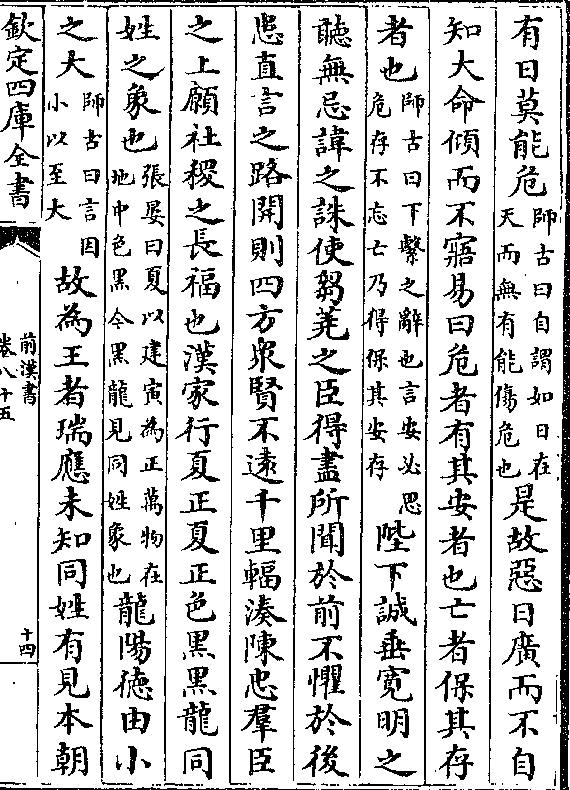 有日莫能危師古曰自謂如日在天而無有能傷危也是故惡日廣而不自
知大命傾而不寤易曰危者有其安者也亡者保其存
者也師古曰下繫之辭也言安必思危存不忘亡乃得保其安存陛下誠垂寛明之
聽無忌諱之誅使芻蕘之臣得盡所聞於前不懼於後
患直言之路開則四方衆賢不逺千里輻湊陳忠羣臣
之上願社稷之長福也漢家行夏正夏正色黑黑龍同
姓之象也張晏曰夏以建寅為正萬物在地中色黑今黑龍見同姓象也龍陽德由小
之大師古曰言因小以至大故為王者瑞應未知同姓有見本朝
欽定四庫全書
前漢書
卷八十五
十四